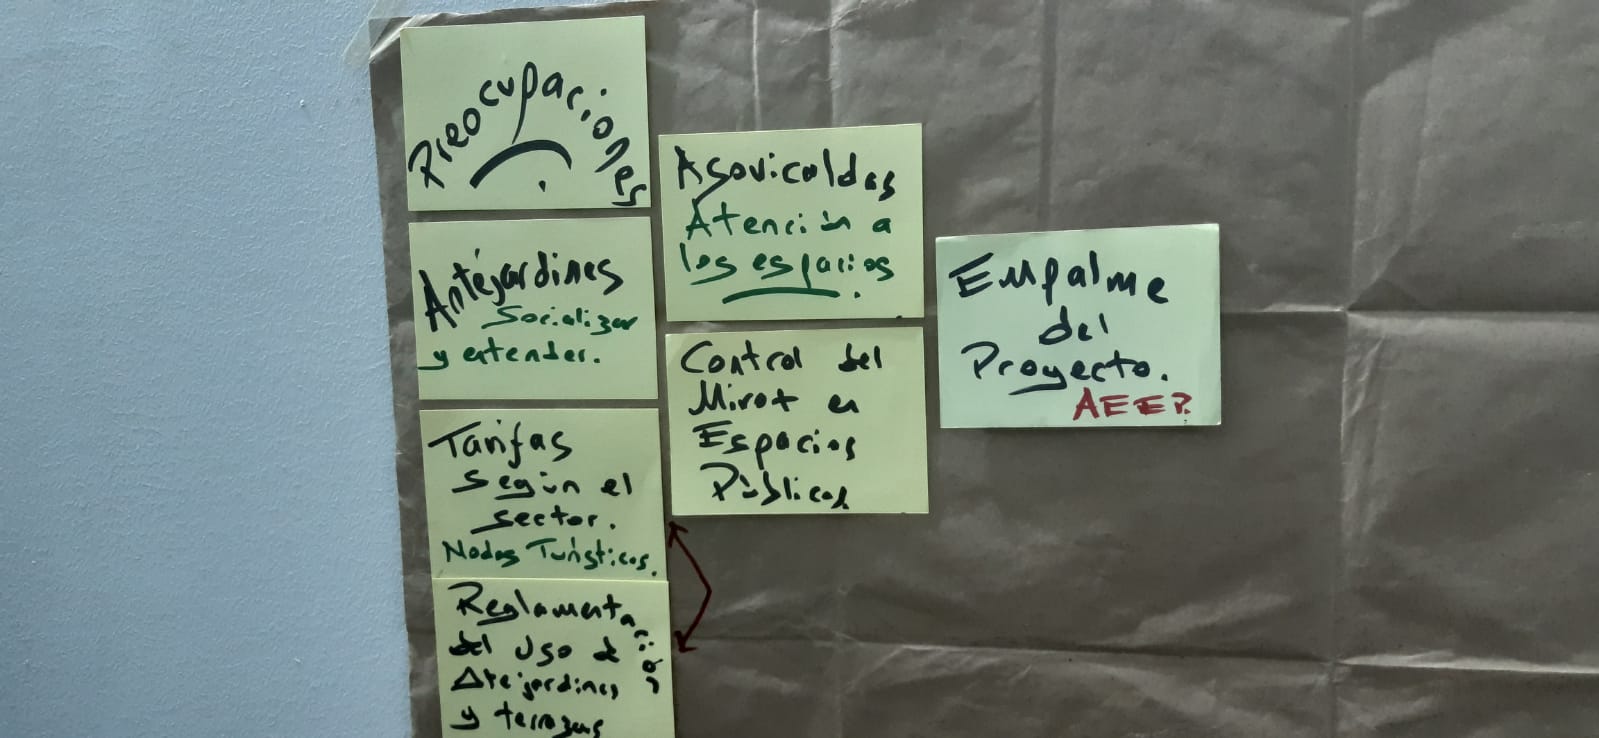 Preocupaciones
Antejardines
Socializar
y entender.
Tarifas
según el
sector.
Nodos Turísticos.
Reglamentación
del Uso de
Antejardines
y terrazas
Asovicaldas
Atención a
los espacios.
Control del
en
Espacios
Públicos
Empalme
del
Proyecto.
AEEP.